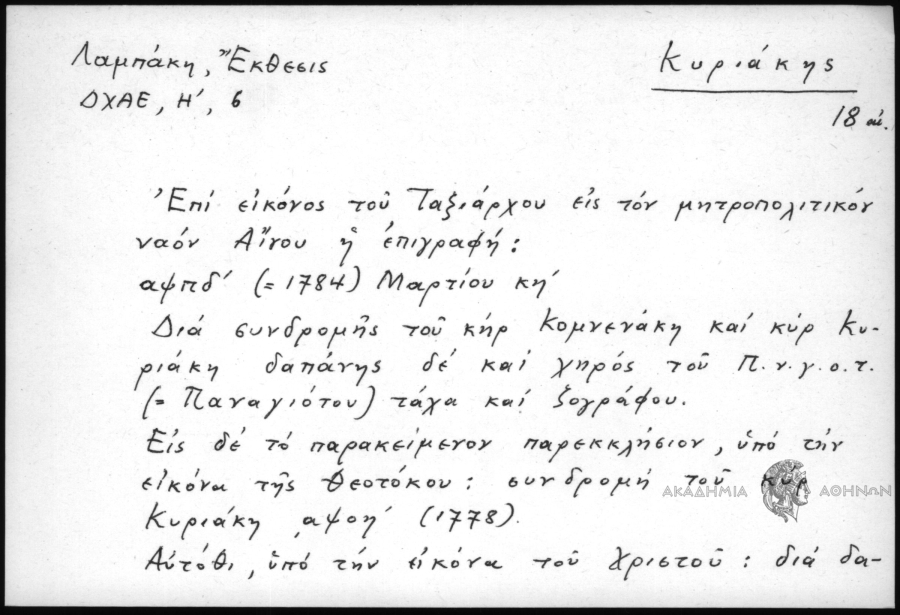 Λαμπάκη, Ἔκθεσις
ΔΧΑΕ, Η', 6
Κυριάκης
18 αἰ.
Ἐπί εἰκόνος τοῦ Ταξιάρχου εἰς τόν μητροπολιτικόν
ναόν Αἴνου ἡ ἐπιγραφή:
αψπδ' (=1784) Μαρτίου κη'
Διά συνδρομῆς τοῦ κήρ Κομνενάκη καί κύρ Κυ-
ριάκη δαπάνης δέ καί χηρός τοῦ Π.ν.γ.ο.τ.
(= Παναγιότου) τάχα καί ζογράφου.
Εἰς δέ τό παρακείμενον παρεκκλήσιον, ὑπό τήν
εἰκόνα τῆς Θεοτόκου: συνδρομή τοῦ κύρ
Κυριάκη ͵αψοη' (1778).
Αὐτόθι, ὑπό τήν εἰκόνα τοῦ Χριστοῦ: διά δα-
ΑΚΑΔΗΜΙΑ ΑΘΗΝΩΝ